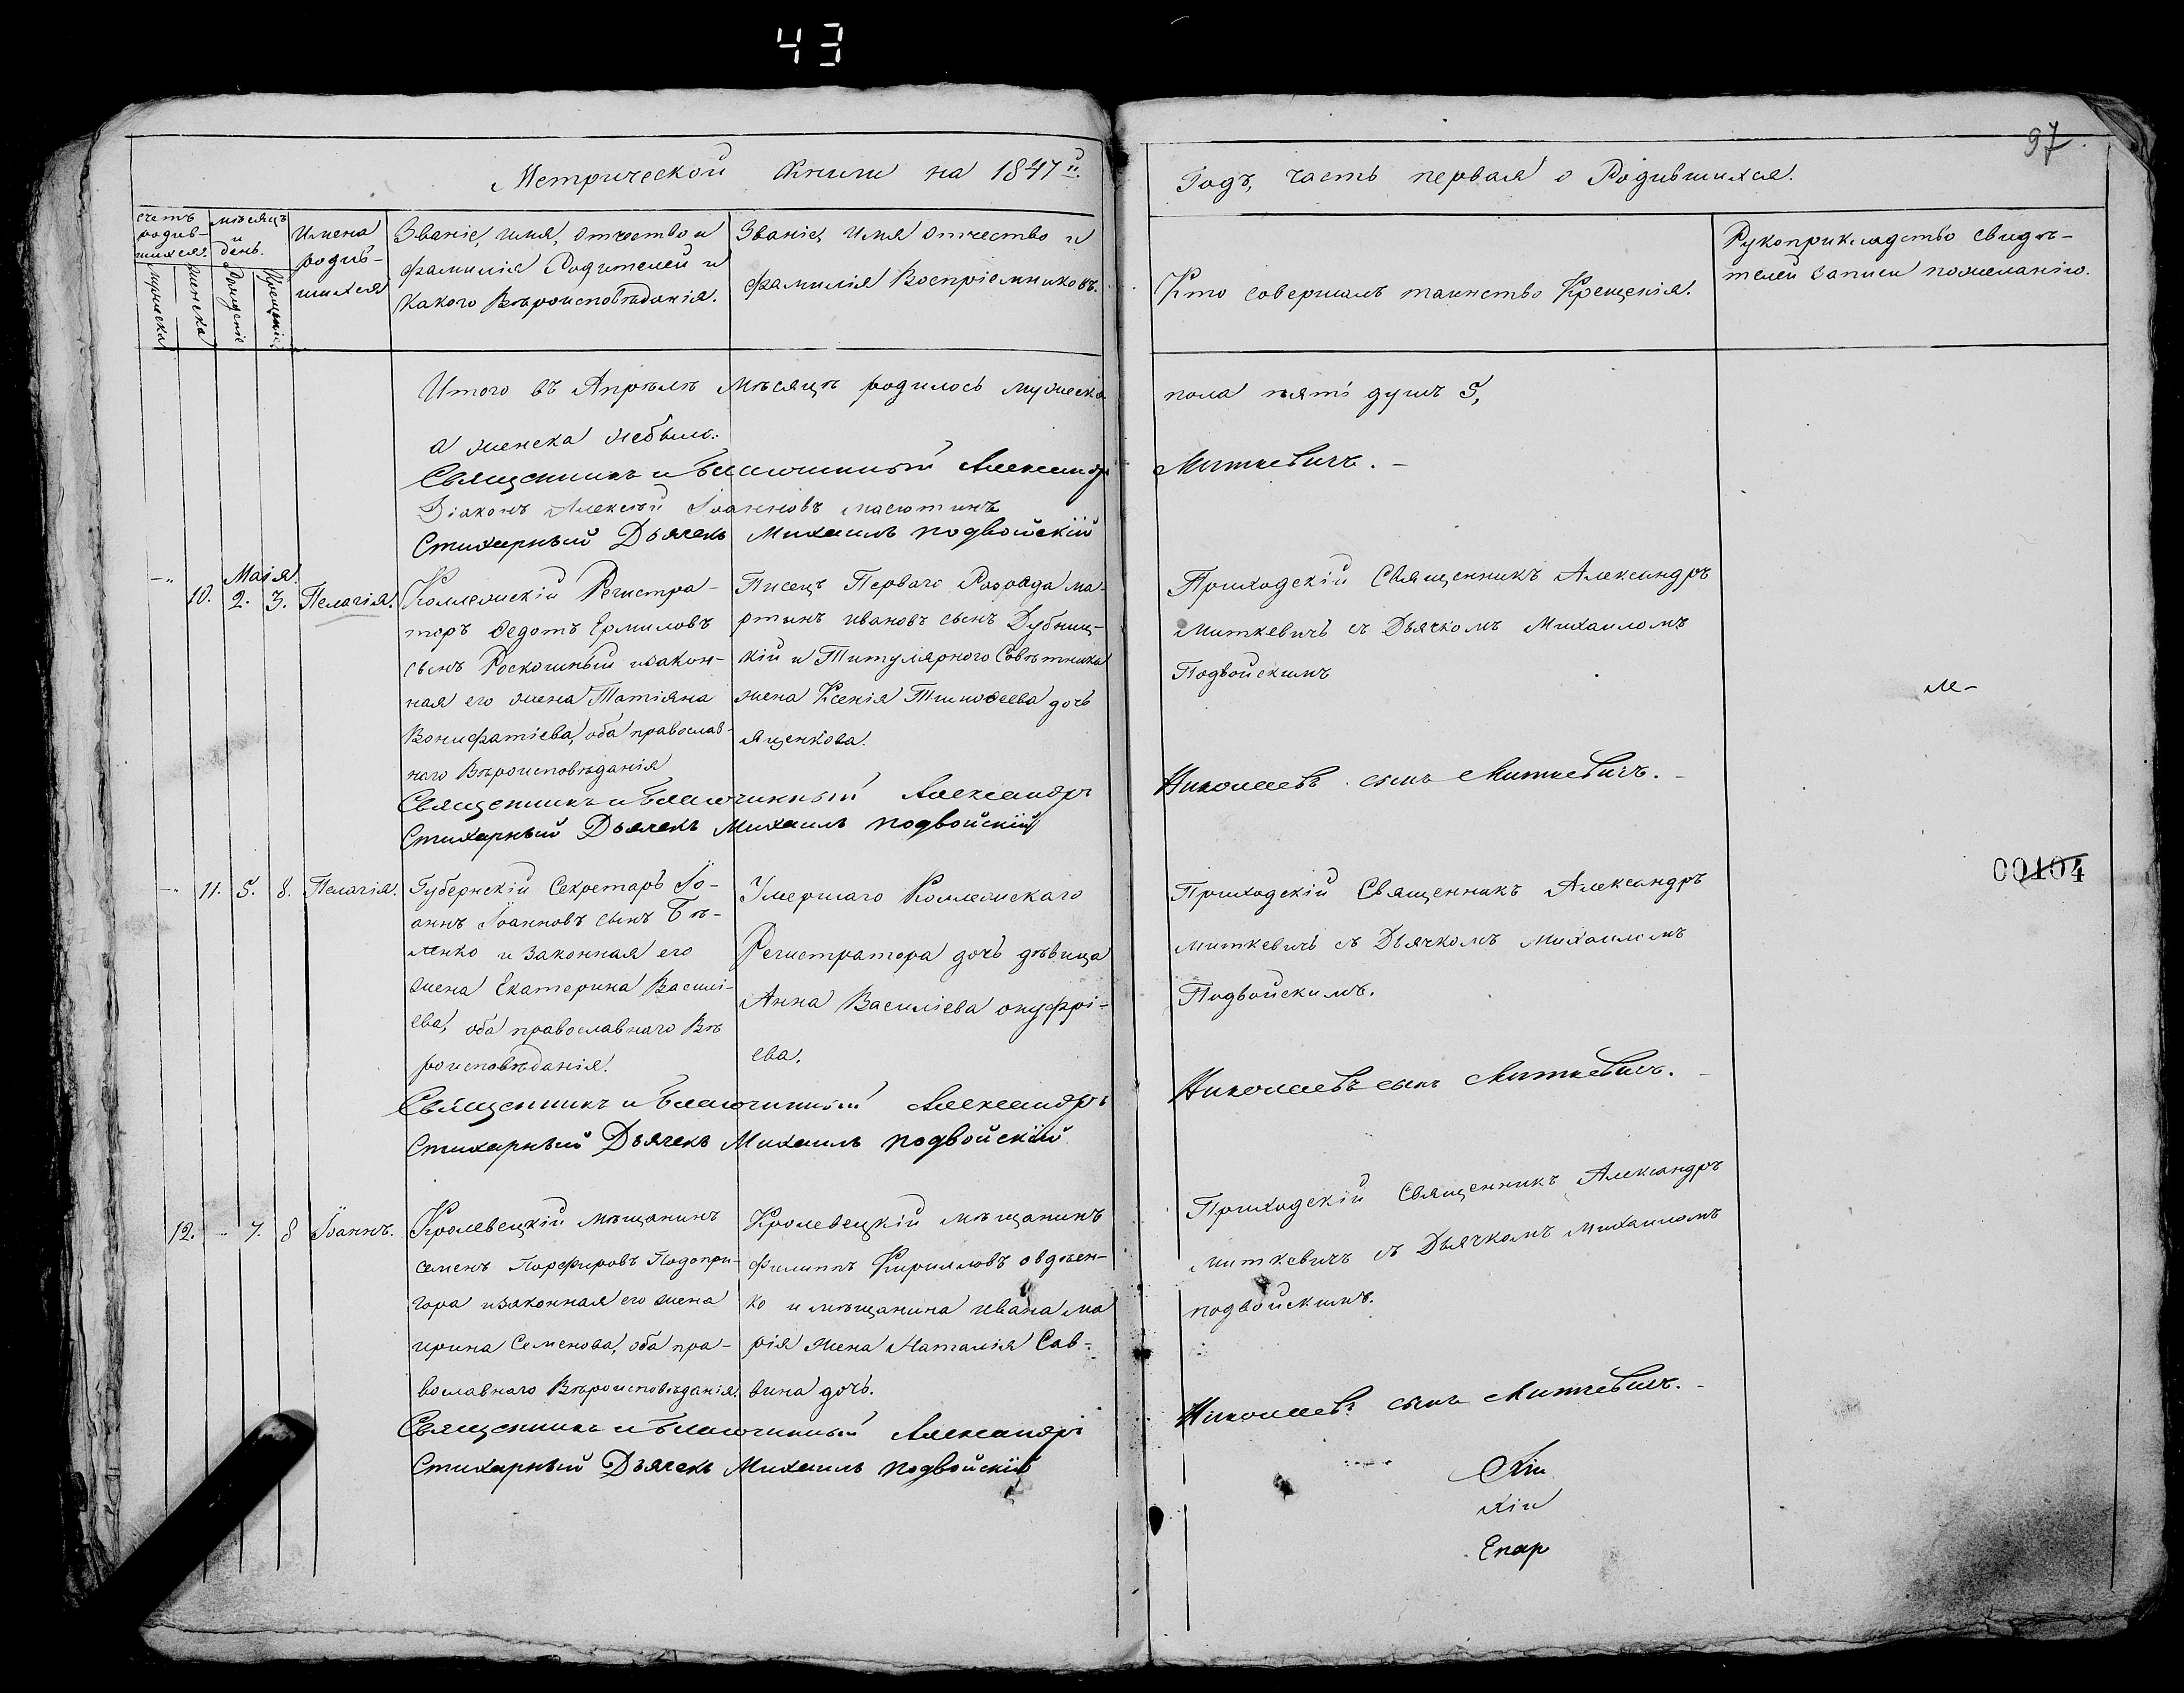 43
97
Метрической Книги на 1847й.
Годъ, часть первая о Родившихся.
счетъ родив-
шихся.
мѣсяцъ
и
день.
Имена
родив-
шихся
Званіе, имя, отчество и
фамилія Родителей и
какого Вѣроисповѣданія.
Званіе, имя отчество и
фамилія Воспріемниковъ.
Кто совершалъ таинство Крещенія.
Рукоприкладство свидѣ-
телей записи пожеланію.
мужеска
женска
Рожденіе
Крещеніе
Итого въ Апрѣлѣ мѣсяцѣ родилось мужеска
пола пять душъ 5,
а женска небыло.
Священникъ и Благочинный Александръ
Миткевичъ.
Діаконъ Алексѣй Іоанновъ Масютинъ
Стихарный Дьячекъ Михаилъ подвойскій
Маія.
10. 2. 3. Пелагія.
Коллежскій Регистра-
торъ Федотъ Ермиловъ
сынъ Роскошный изакон-
ная его жена Татіяна
Вонифатіева, оба православ-
наго Вѣроисповѣданія
Писецъ Перваго Разряда ма-
ртинъ ивановъ сынъ Дубниц-
кій и Титулярного Совѣтника
жена Ксенія Тимофеева дочь
Ященкова.
Приходскій Священникъ Александръ
миткевичъ съ Дьячкомъ Михаиломъ
Подвойскимъ
ле-
Священникъ и Благочинный Александръ
Николаевъ сынъ Миткевичъ.
Стихарный Дьячекъ Михаилъ подвойскій
00104
11. 5. 8. Пелагія.
Губернскій Секретарь Іо-
аннъ Іоанновъ сынъ Бѣ-
ленко и законная его
жена Екатерина Василі-
ева, оба православнаго Вѣ
роисповѣданія.
Умершаго Коллежскаго
Регистратора дочь дѣвица
Анна Василіева онуфрі-
ева.
Приходскій Священникъ Александръ
миткевичъ съ Дьячкомъ михаиломъ
Подвойскимъ.
Священникъ и Благочинный Александръ
Николаевъ сынъ Миткевичъ.
Стихарный Дьячекъ Михаилъ подвойскій
12. 7. 8 Іоаннъ.
Кролевецкій мѣщанинъ
семенъ Порфировъ Подопри-
гора изаконная его жена
ирина Семенова, оба пра-
вославнаго Вѣроисповѣданія.
Кролевецкій мѣщанинъ
филиппъ Кирилловъ овдѣен-
ко и мѣщанина ивана ма
рія жена Наталія Сав-
вина дочь.
Приходскій Священникъ Александръ
миткевичъ съ Дьячкомъ михаиломъ
подвойскимъ.
Священникъ и Благочинный Александръ
Николаевъ сынъ Миткевичъ.
Стихарный Дьячекъ Михаилъ подвойскій
кіи
Епар